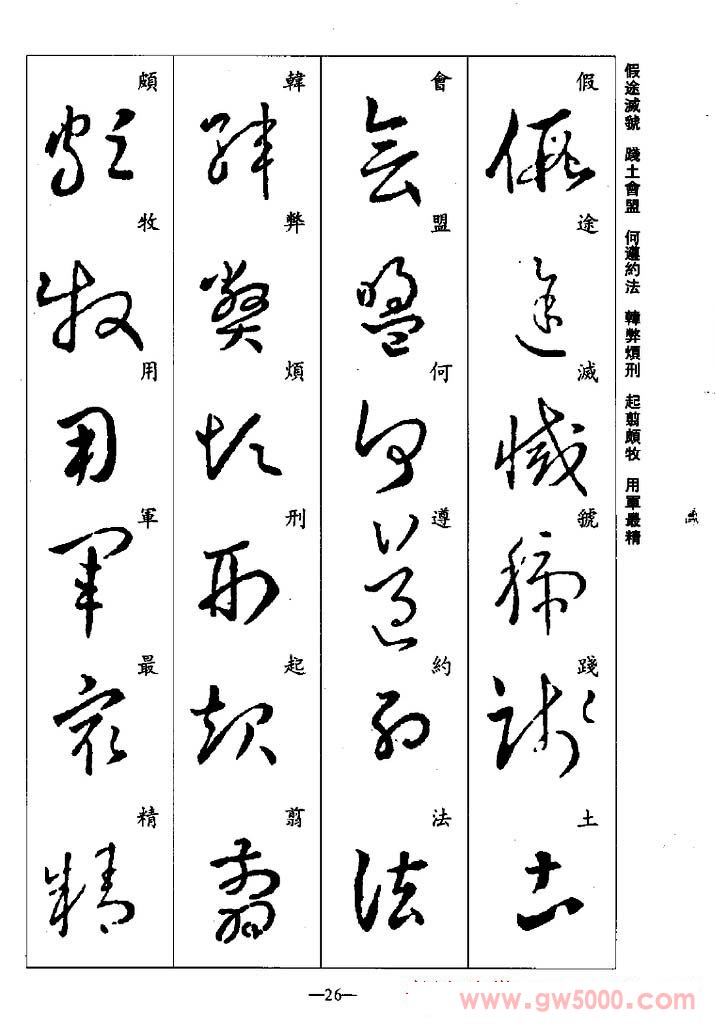 假途滅號 踐土會盟 何遵約法 韓弊煩刑 起翦頗牧 用軍最精
假途滅號踐土
會盟何遵約法
韓弊煩刑起翦
頗牧用軍最精
—26—
www.gw5000.com